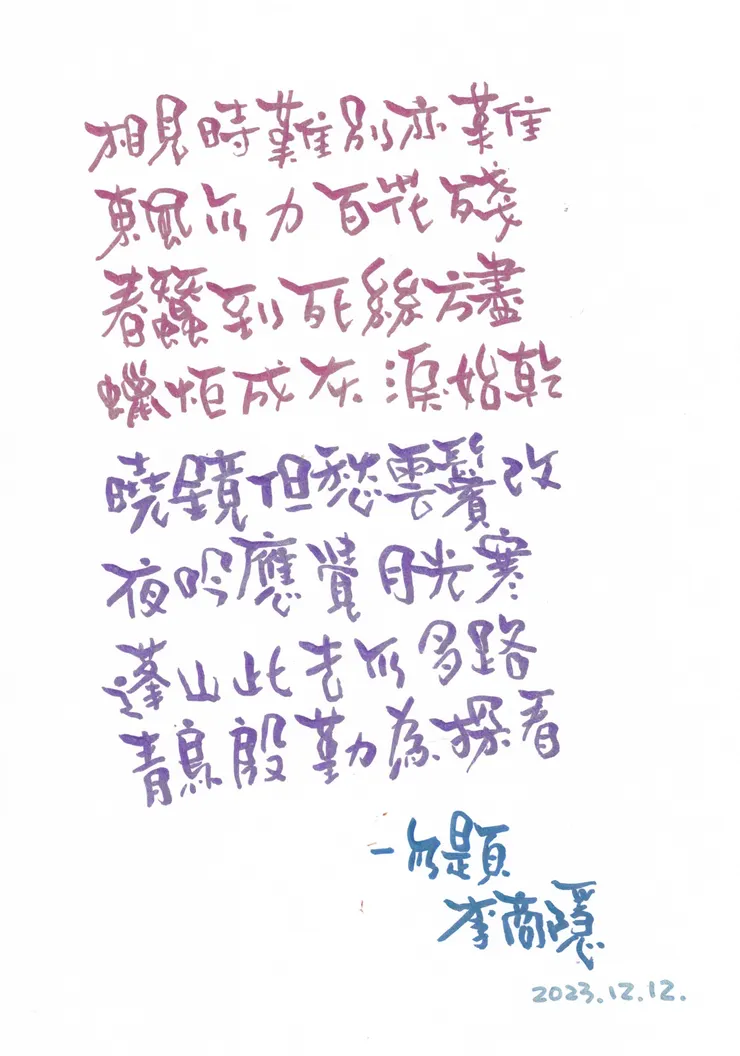 相見時難別亦難
東風無力百花殘
春蠶到死絲方盡
蠟炬成灰淚始乾
曉鏡但愁雲鬢改
夜吟應覺月光寒
蓬山此去無多路
青鳥殷勤為探看
—無題
李商隱
2023.12.12.